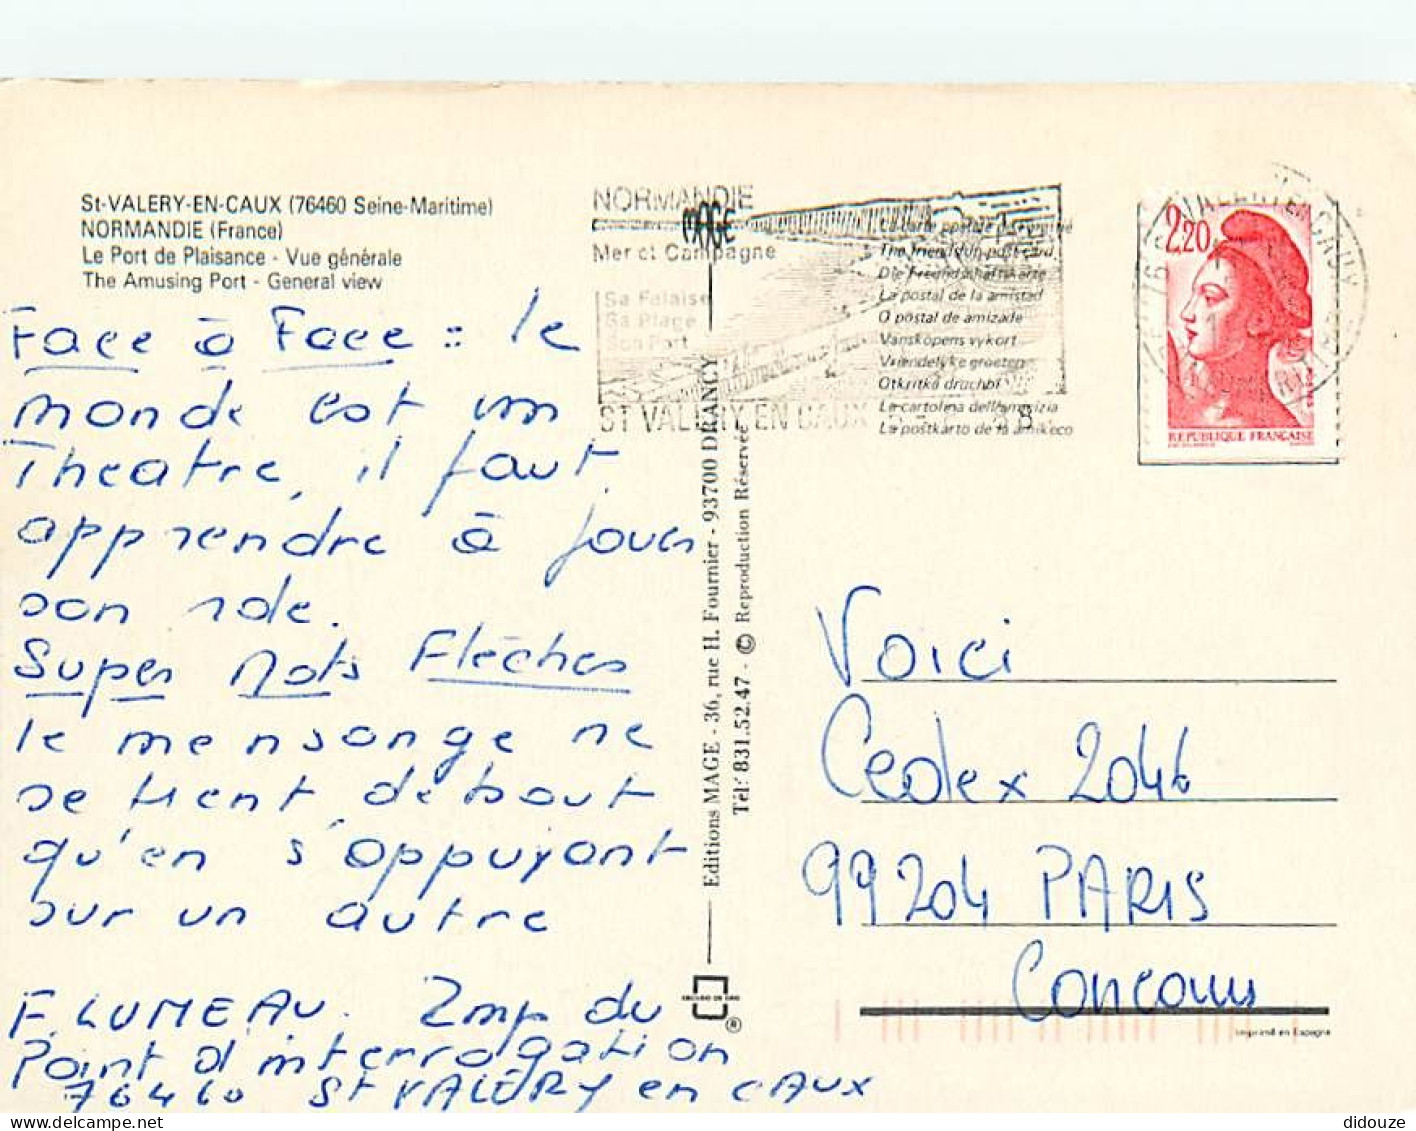 St-VALERY-EN-CAUX (76460 Seine-Maritime)
NORMANDIE (France)
Le Port de Plaisance - Vue générale
The Amusing Port - General view
NORMANDIE
MAGE
Mer et Campagne
Sa Falaise
Sa Plage
Son Port
ST VALERY EN CAUX
La carte postale
The friendship post card
Die Freundschaftskarte
La postal de la amistad
O postal de amizade
Vanskopens vykort
Vriendelyke groeten
Otkritka druchbi
La cartolina dell'amicizia
La postkarto de la amikeco
2,20
REPUBLIQUE FRANÇAISE
Face à Face : le
monde est un
Theatre, il faut
apprendre à jouer
son role.
Super Mots Flèches
le mensonge ne
se tient debout
qu'en s'appuyant
sur un autre
F. LUMEAU. Imp du
Point d'interrogation
76460 St VALÉRY en CAUX
Editions MAGE - 36, rue H. Fournier - 93700 DRANCY
Tél: 831.52.47 - © Reproduction Réservée
®
Voici
Cedex 2046
99204 PARIS
Concours
Imprimé en Espagne
didouze